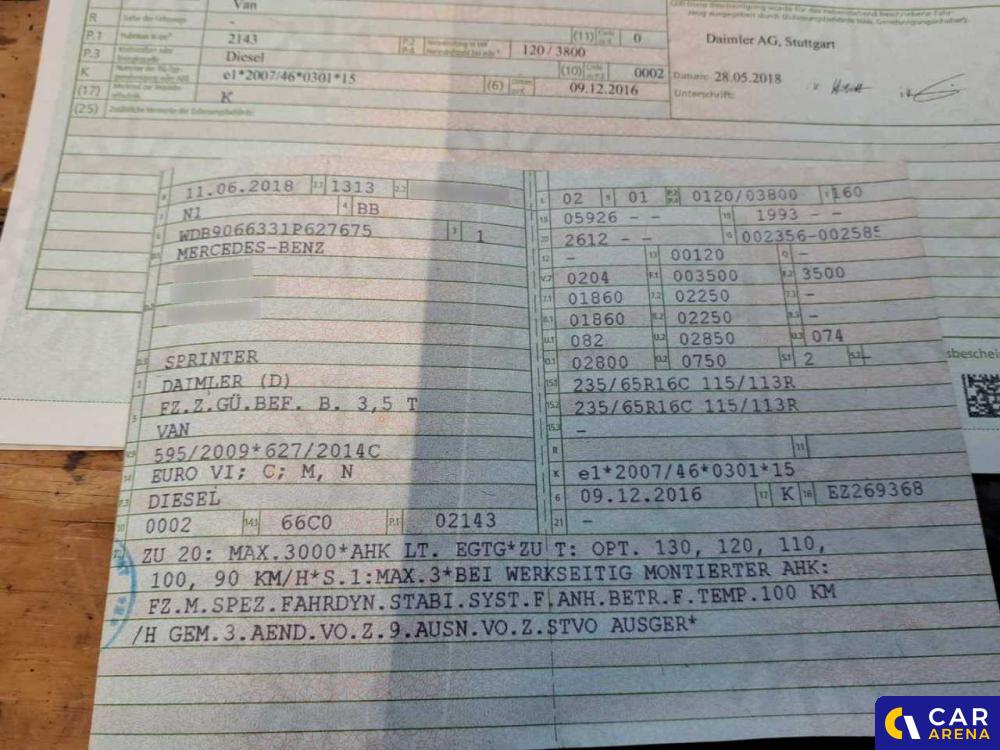 Van
R
-
P.1 2143 (11) 0
P.3 Diesel 120/3800
K e1*2007/46*0301*15 (10) 0002
(17) K (6) 09.12.2016
(25)
Daimler AG, Stuttgart
Datum: 28.05.2018
Unterschrift:
11.06.2018 2.1 1313 2.2
N1 4 BB
WDB9066331P627675 3 1
MERCEDES-BENZ
SPRINTER
DAIMLER (D)
FZ.Z.GÜ.BEF. B. 3,5 T
VAN
595/2009*627/2014C
EURO VI; C; M, N
DIESEL
0002 14.1 66C0 P.1 02143
02 9 01 0120/03800 160
18 05926 - - 19 1993 - -
20 2612 - - G 002356-002585
12 - 13 00120 Q -
V.7 0204 F.1 003500 F.2 3500
7.1 01860 7.2 02250 7.3 -
8.1 01860 8.2 02250 8.3 -
U.1 082 U.2 02850 U.3 074
O.1 02800 O.2 0750 S.1 2 S.2 -
15.1 235/65R16C 115/113R
15.2 235/65R16C 115/113R
15.3 -
R 11
K e1*2007/46*0301*15
6 09.12.2016 17 K 16 EZ269368
21 -
ZU 20: MAX.3000*AHK LT. EGTG*ZU T: OPT. 130, 120, 110,
100, 90 KM/H*S.1:MAX.3*BEI WERKSEITIG MONTIERTER AHK:
FZ.M.SPEZ.FAHRDYN.STABI.SYST.F.ANH.BETR.F.TEMP.100 KM
/H GEM.3.AEND.VO.Z.9.AUSN.VO.Z.STVO AUSGER*
CAR
ARENA